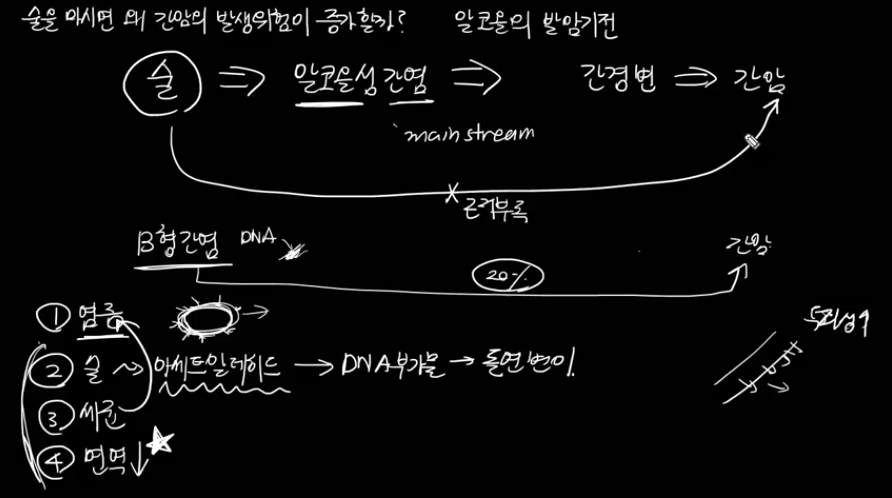 술을 마시면 왜 간암의 발생위험이 증가할까? 알코올의 발암기전
술 ⇒ 알코올성 간염 ⇒ 간경변 ⇒ 간암
main stream
근거부족
B형간염 DNA 간암
20%
① 염증
돌연변이성↑
② 술 → 아세트알데히드 → DNA부가물 → 돌연변이
③ 세균
④ 면역↓